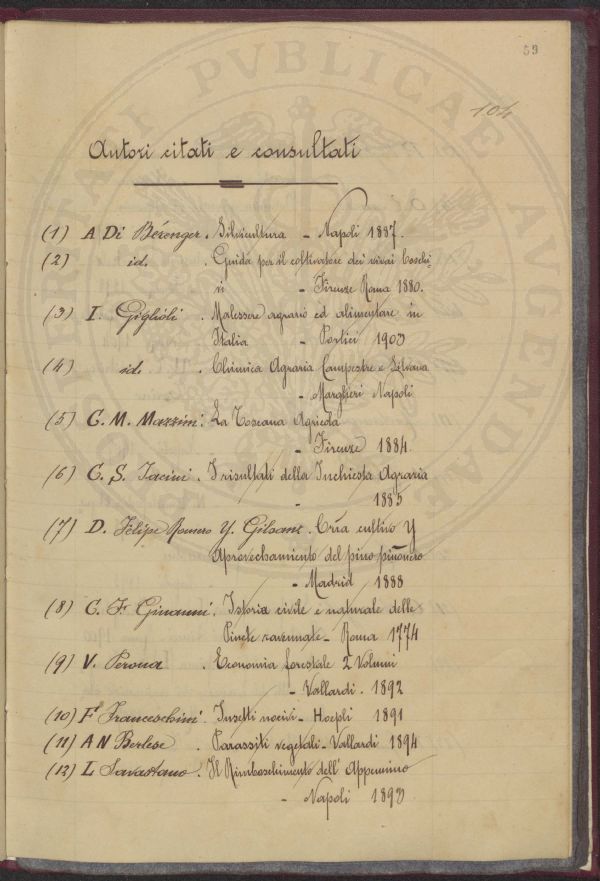 59
104
Autori citati e consultati
(1) A Di Bérenger. Silvicultura - Napoli 1887.
(2) id. . Guida per il coltivatore dei vivai boschi-
vi - Firenze Roma 1880.
(3) I. Giglioli . Malessere agrario ed alimentare in
Italia - Portici 1903
(4) id. . Chimica Agraria Campestre e Silvana
- Marghieri Napoli
(5) C. M. Mazzini. La Toscana Agricola
- Firenze 1884.
(6) C. S. Jacini. I risultati della Inchiesta Agraria
- 1885
(7) D. Felipe Romero y Gilsanz. Cria cultivo y
Aprovechamiento del pino piñonero
- Madrid 1888
(8) C. F. Ginanni. Istoria civile e naturale delle
Pinete ravennate - Roma 1774
(9) V. Perona . Economia forestale 2 Volumi
- Vallardi. 1892
(10) Fr Franceschini. Insetti nocivi - Hoepli 1891
(11) A N Berlese . Parassiti vegetali - Vallardi 1894
(12) L Savastano. Il Rimboschimento dell' Appennino
- Napoli 1893
PVBLICAE
AVGENDAE